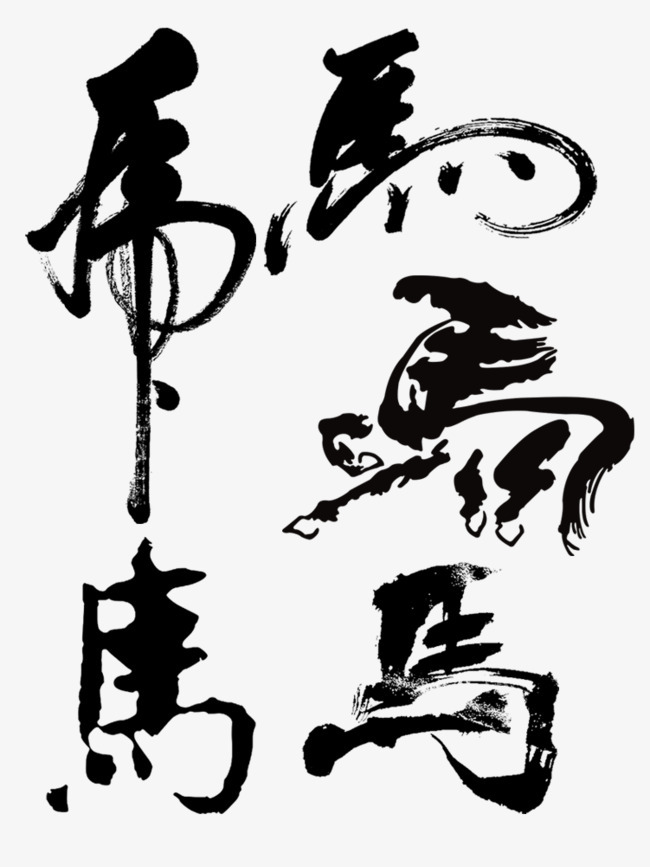 馬 馬
馬
馬 馬